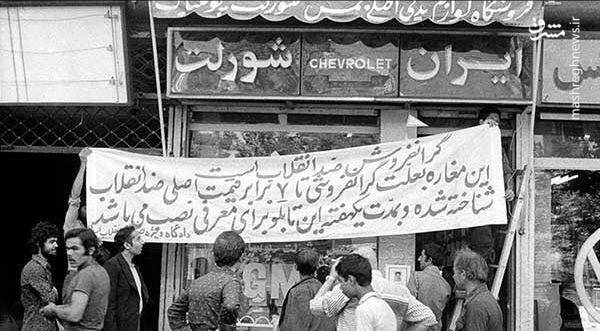 فروشگاه لوازم یدکی اصلی
ایران
CHEVROLET
شورلت
گرانفروش ضد انقلاب است
این مغازه بعلت گرانفروشی تا ۷ برابر قیمت اصلی ضد انقلاب
شناخته شده و بمدت یکهفته این تابلو برای معرفی نصب می باشد
دادگاه ویژه
GM
مشرق
mashreghnews.ir